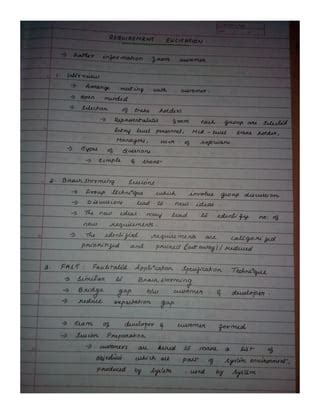 REQUIREMENT ELICITATION
→ Gather information from customer
1. Interview
→ Arrange meeting with customer.
→ Open minded
→ Selection of stake holders
→ Representatives from each group are selected
Entry level personnel, Mid-level stake holder,
Managers, users of software
→ Types of Questions
→ Simple & short
2. Brainstorming Sessions
→ Group technique which involves group discussion
→ Discussions lead to new ideas
→ The new ideas may lead to identify no. of
new requirements.
→ The identified requirements are categorified
prioritized and pruned (cut away)/reduced
3. FAST: Facilitated Application Specification Technique
→ Similar to Brainstorming
→ Bridge gap b/w customer & developer
→ reduce expectation gap
→ team of developer & customer formed
→ Session Preparation
→ customers are asked to make a list of
objectives which are part of system environment,
produced by system used by system